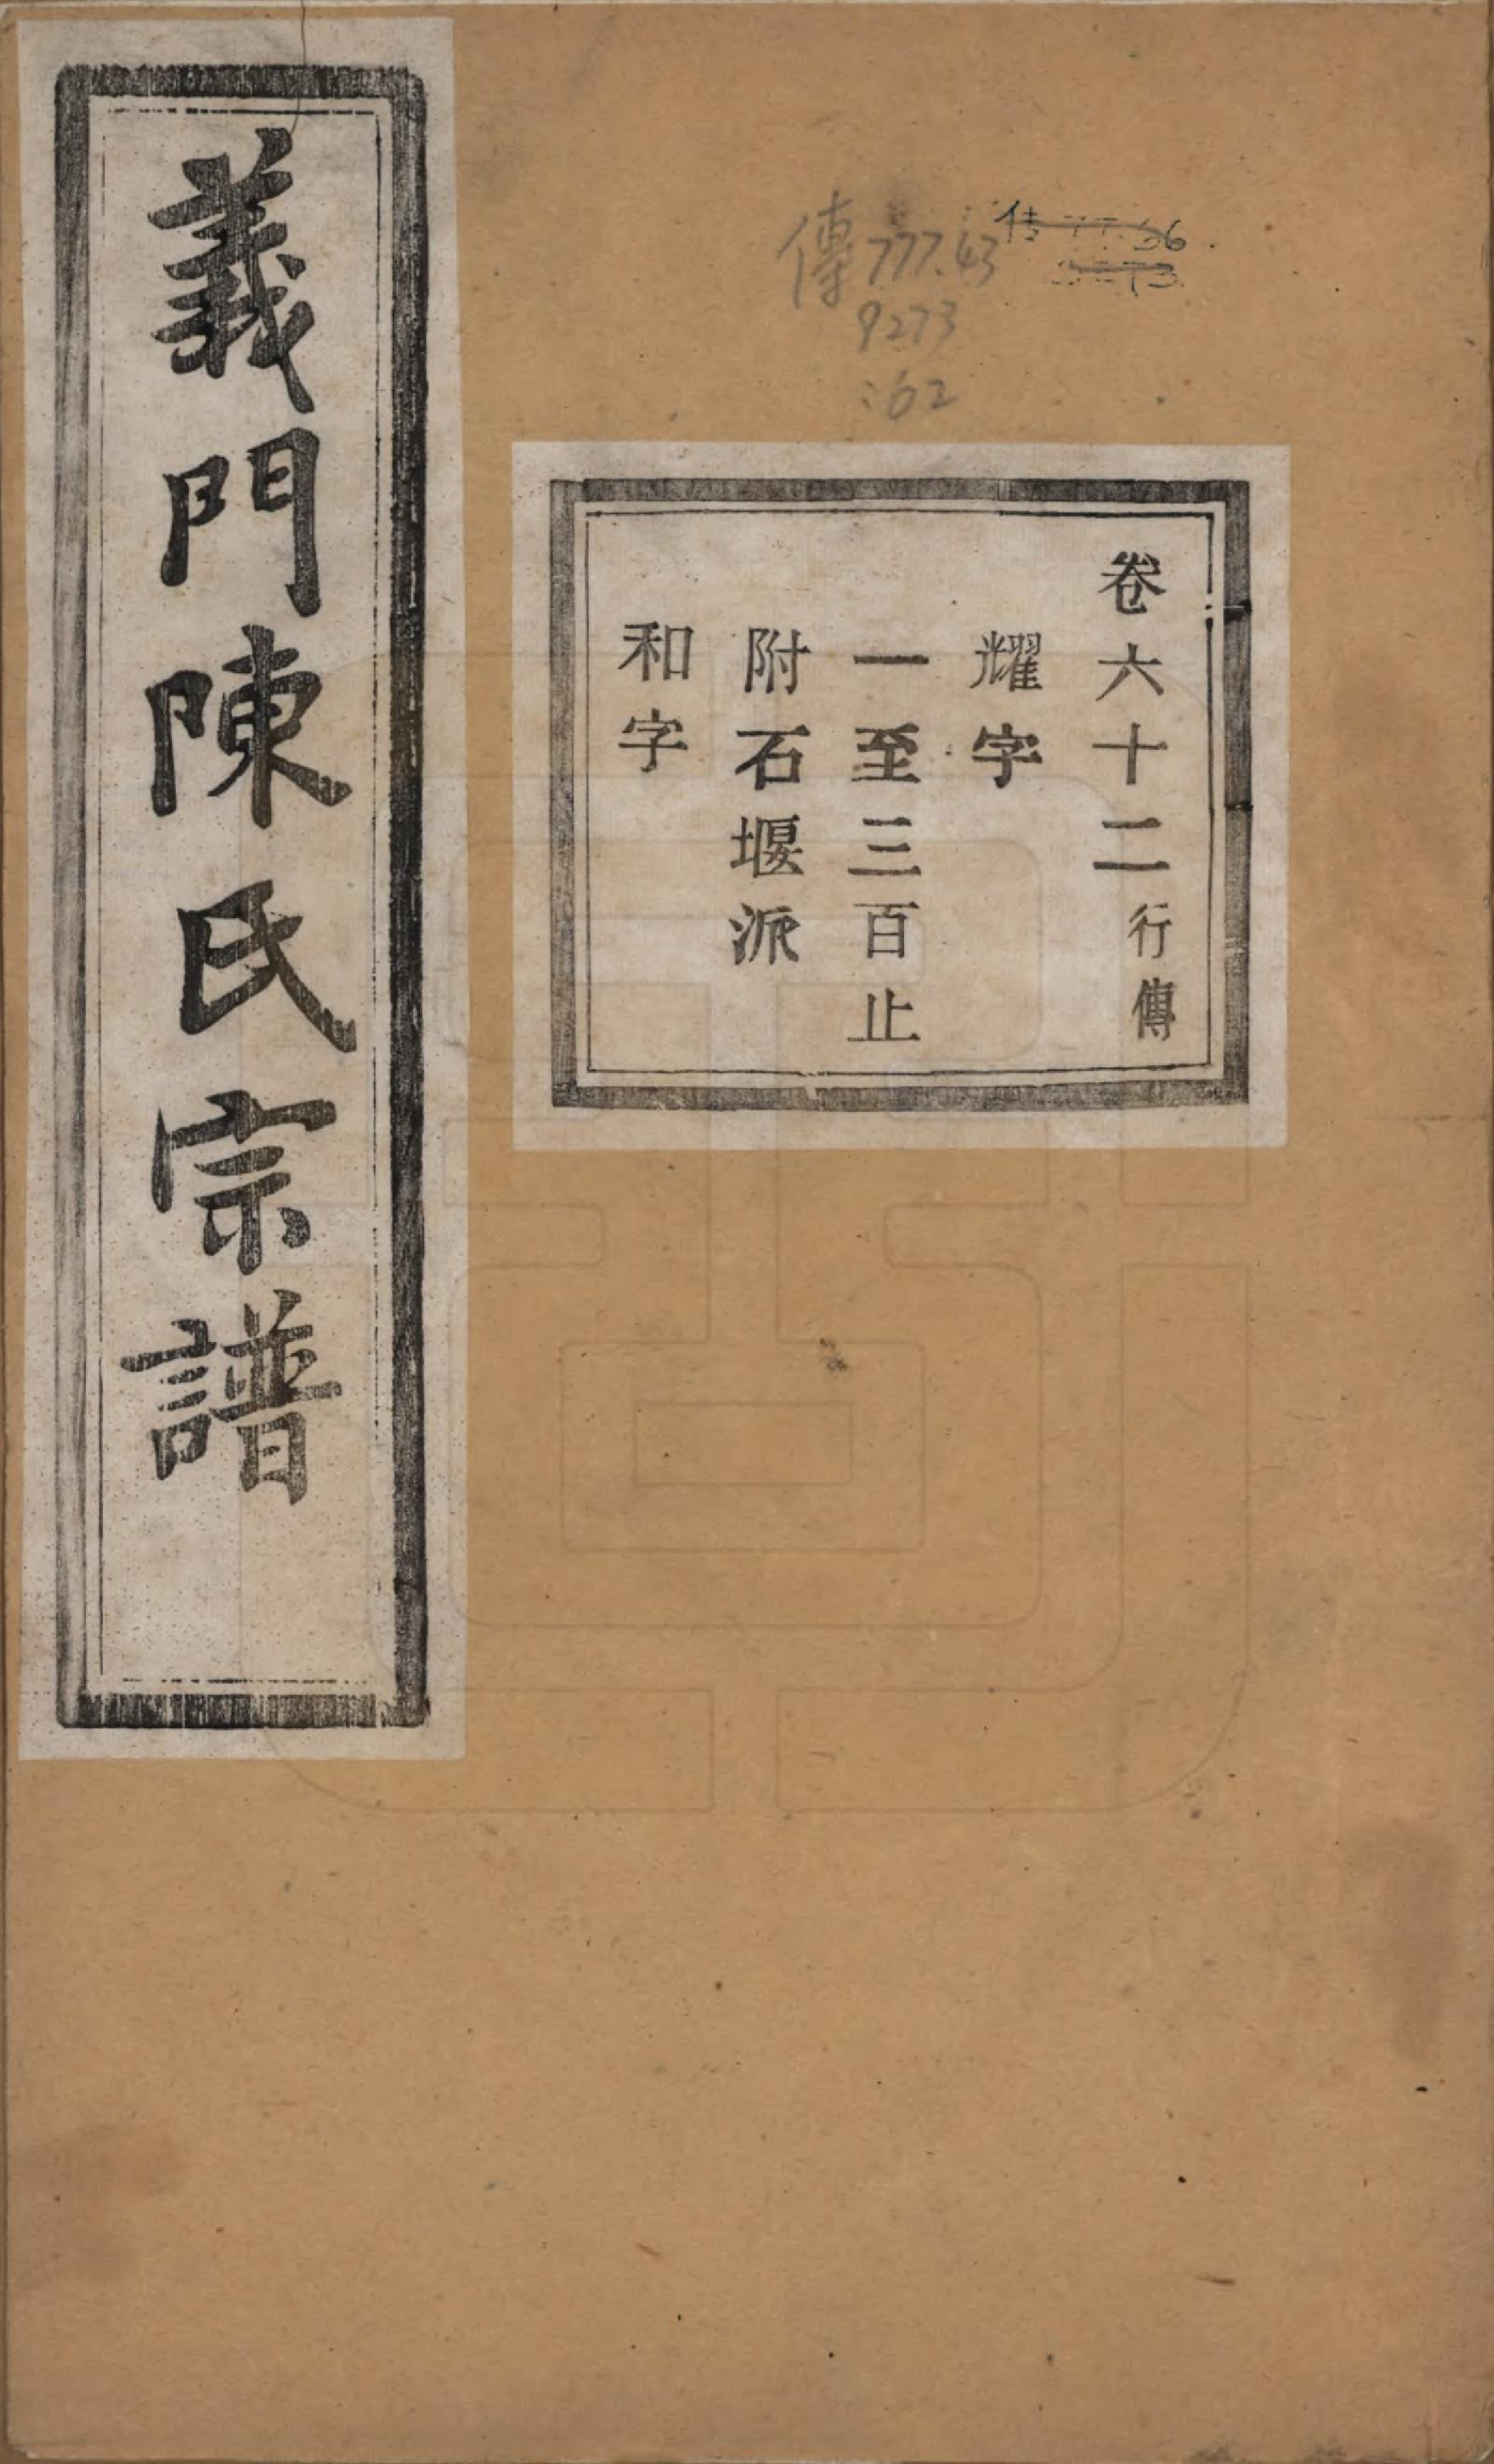 卷六十二行傳
耀字
一至三百止
附石堰派
和字
義門陳氏宗譜
傳777.43
9273
:62